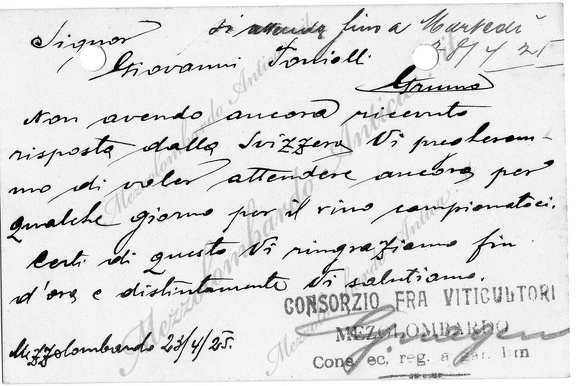 Signor
si attende fino a Martedì
28/4/25
Giovanni Tonioli
Grumo
Non avendo ancora ricevuto
risposta dalla Svizzera Vi pregheram-
mo di voler attendere ancora per
qualche giorno per il vino campionatoci.
Certi di questo Vi ringraziamo fin
d'ora e distintamente Vi salutiamo.
CONSORZIO FRA VITICULTORI
MEZOLOMBARDO
Cons. ec. reg. a gar. lim
Mezzolombardo 23/4/25.
Mezzolombardo Antica